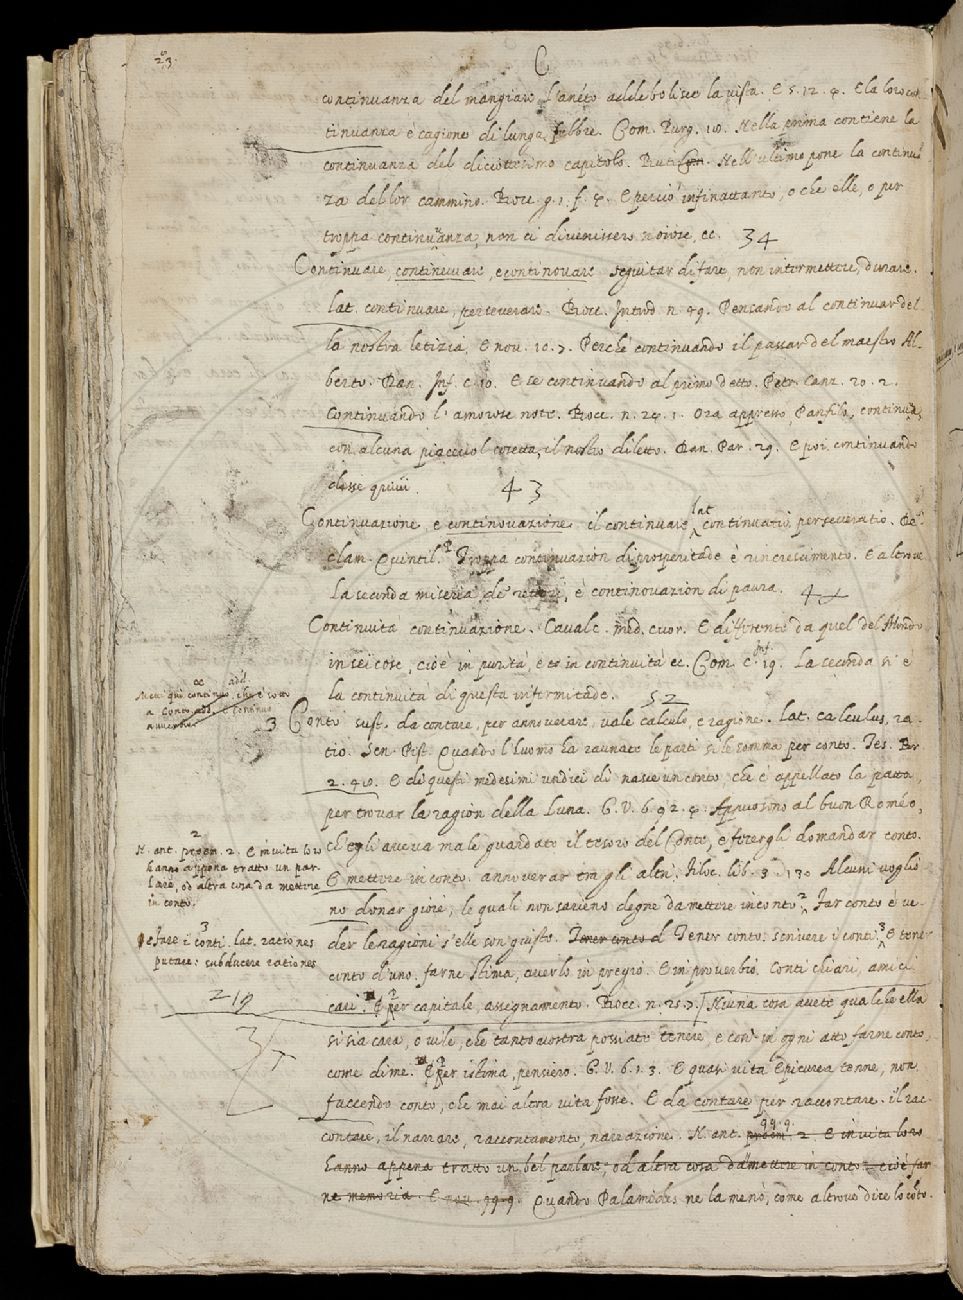 23.
C
continuanza del mangiare l'aneto addebolisce la vista. E 5. 12. 4. E la loro con-
tinuanza è cagione di lunga febbre. Com. Purg. 10. Nella prima contiene la
continuanza del diciottesimo capitolo. Buti. Nell'ultimo pone la continuan-
za del lor cammino. Bocc. g. 1. f. 4. E perciò infinattanto, o che elle, o per
troppa continuanza, non ci divenissero noiose, ec. 34
Continuare, continevare, e continovare seguitar di fare, non intermettere, durare.
lat. continuare, perseverare. Bocc. Introd. n. 49. Pensando al continuar del-
la nostra letizia, E nov. 10. 7. Perchè continuando il passar del maestro Al-
berto. Dan. Inf. c. 10. E se continuando al primo detto. Petr. Canz. 20. 2.
Continuando l'amorose note. Bocc. n. 24. 1. Ora appresso, Panfilo, continua
con alcuna piacevol cosetta, il nostro diletto. Dan. Par. 29. E poi continuando
disse quivi. 43
Continuazione, e continovazione. il continuare, lat. continuatio, perseveratio. De-
clam. Quintil. Troppa continuazion di prosperitade è rincrescimento. E altrove
La seconda miseria de', è continovazion di paura. 4
Continuità continuazione. Cavalc. med. cuor. E differente da quel del Mondo
in sei cose, cioè in purità, e in continuità ec. Com. Inf. c. 19. La seconda si è
la continuità di questa infermitade. 52
3 Conto sust. da contare, per annoverare, vale calcolo, e ragione. Lat. calculus, ra-
tio. Sen. Pist. Quando l'huomo ha raunate le parti si le somma per conto. Tes. Br.
2. 40. E di questi medesimi undici dì nasce un conto, che è appellato la patta,
per trovar la ragion della Luna. G. V. 6. 92. 4. Appuosono al buon Romeo,
ch'egli aveva male guardato il tesoro del Conte, e fecergli domandar conto.
E mettere in conto. annoverar tra gli altri. Filoc. lib. 3. 130 Alcuni voglio-
no donar gioie, le quali non sarieno degne da mettere in conto. Far conto è ve-
der le ragioni s'elle son giuste. Tener conto d Tener conto: scrivere i conti. E tener
conto d'uno. farne stima, averlo in pregio. E in proverbio. Conti chiari, amici
cari. E per capitale, assegnamento. Bocc. n. 25. 7. Niuna cosa avete qual ch'ella
si sia cara, o vile, che tanto vostra possiate tenere, e così in ogni atto farne conto,
come di me. E per istima, pensiero. G. V. 6. 1. 3. E quasi vita Epicurea tenne, non
faccendo conto, che mai altra vita fosse. E da contare per raccontare. il rac-
contare, il narrare, raccontamento, narrazione. N. ant. 99. 9. proem. 2. E in vita loro
hanno appena tratto un bel parlare, od altra cosa da mettere in conto: cioè far-
ne memoria. E nov. 99. 9. Quando Palamides ne la menò, come altrove dice lo conto.
N. ant. proem. 2. E in vita loro
hanno appena tratto un par-
lare, od altra cosa da mettere
in conto.
Fare i conti. lat. rationes
putare: subducere rationes
219